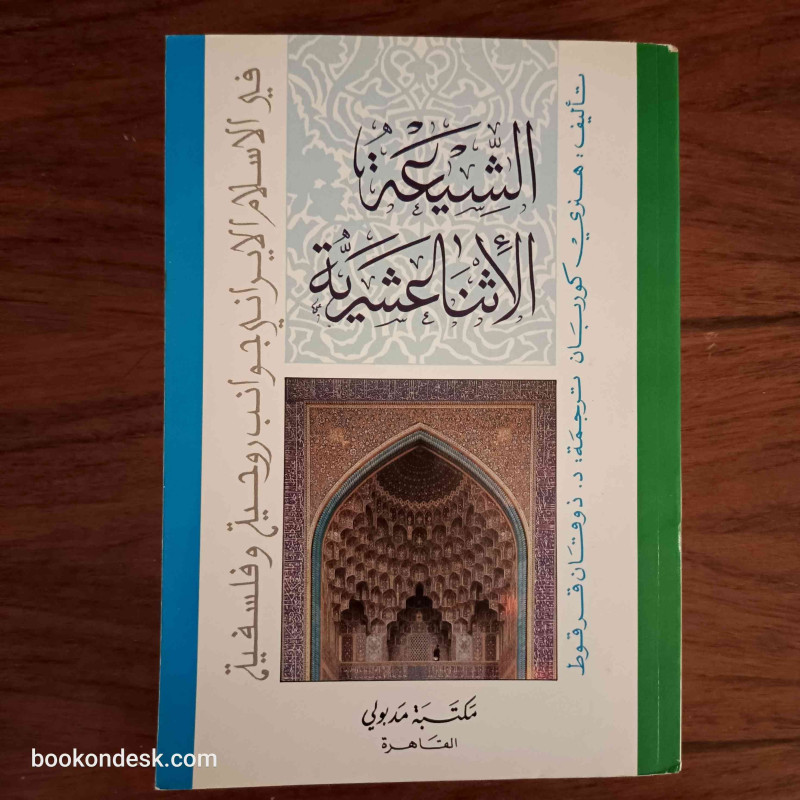 الشِّيعَة
الإثنا عشَريّة
في الاسلام الايراني جوانب روحية وفلسفية
تأليف: هنري كوربَان ترجمَة: د. ذوقان قرقوط
مكتبَة مَدبولي
القاهرة
bookondesk.com